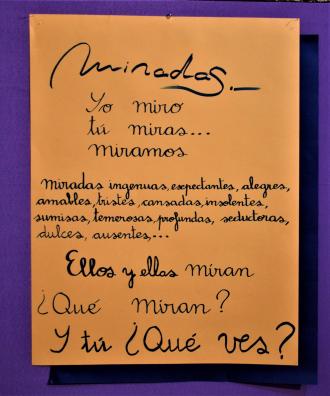 Miradas.-
Yo miro
tú miras...
miramos
miradas ingenuas, expectantes, alegres,
amables, tristes, cansadas, insolentes,
sumisas, temerosas, profundas, seductoras,
dulces, ausentes,...
Ellos y ellas miran
¿Qué miran?
Y tú ¿Qué ves?